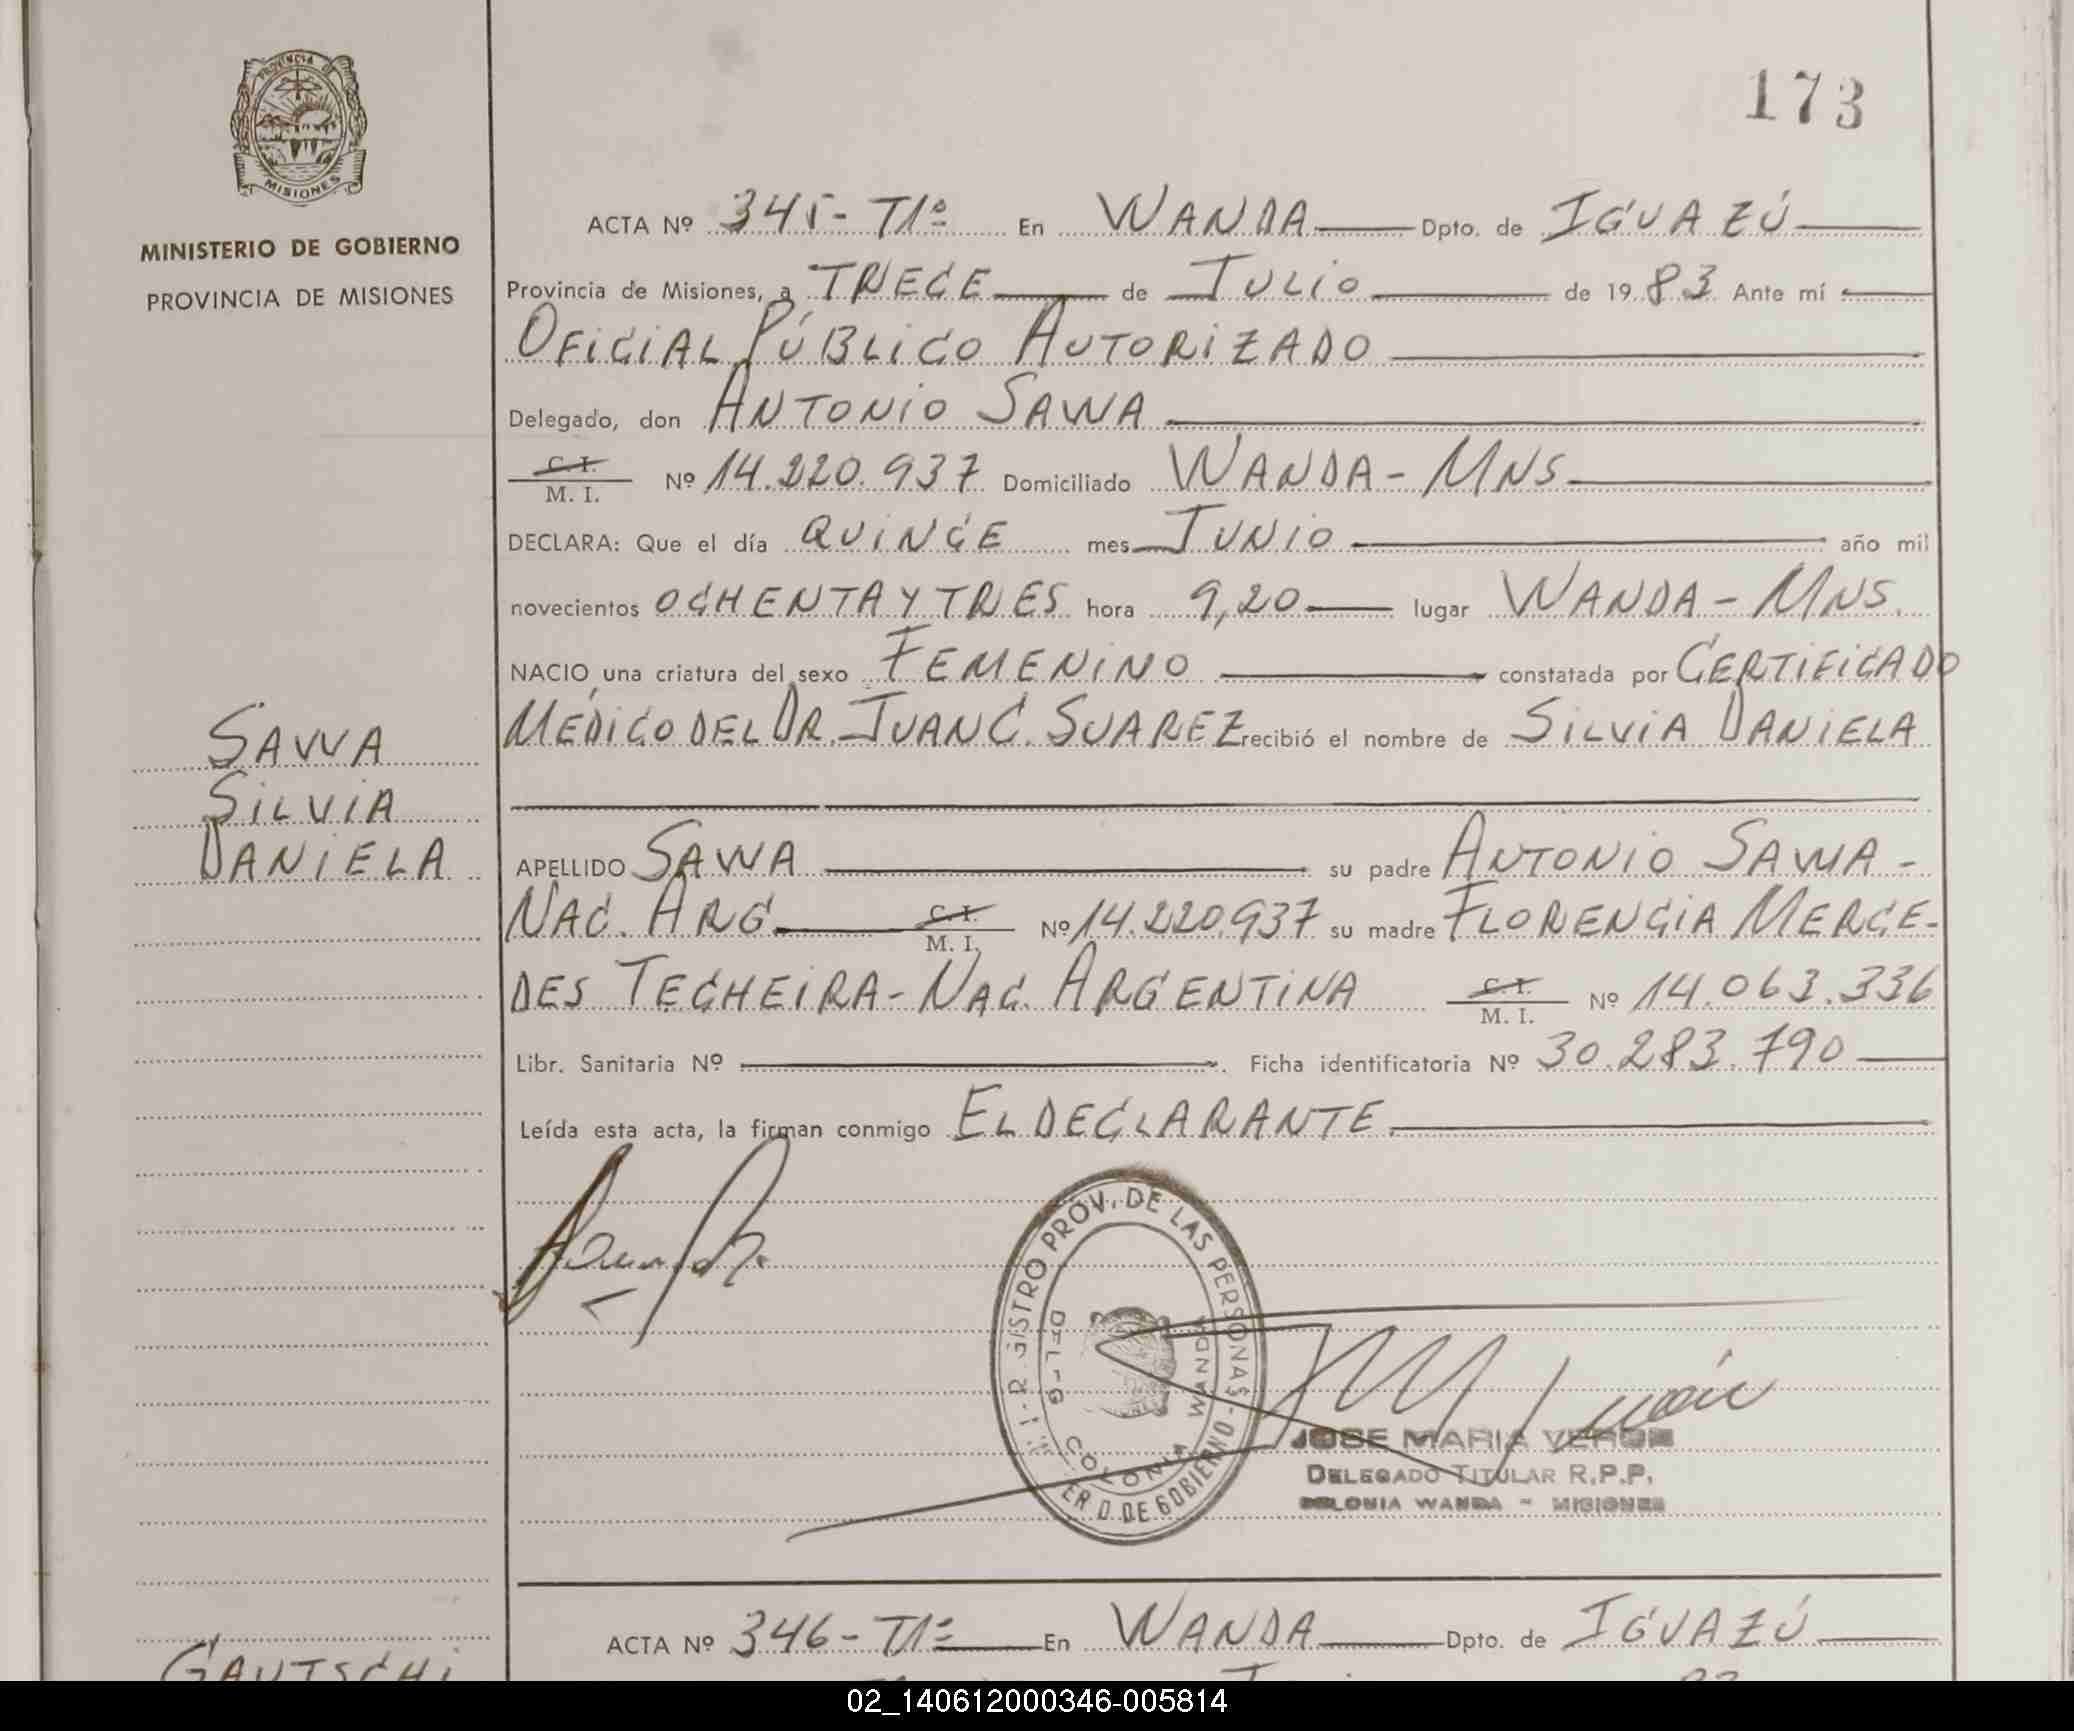 PROVINCIA DE
MISIONES
MINISTERIO DE GOBIERNO
PROVINCIA DE MISIONES
173
ACTA Nº 345-T1º En WANDA Dpto. de IGUAZÚ
Provincia de Misiones, a TRECE de JULIO de 1983 Ante mí
OFICIAL PÚBLICO AUTORIZADO
Delegado, don ANTONIO SAWA
C. I.
M. I. Nº 14.220.937 Domiciliado WANDA-MNS
DECLARA: Que el día QUINCE mes JUNIO año mil
novecientos OCHENTA Y TRES hora 9,20 lugar WANDA-MNS.
NACIO una criatura del sexo FEMENINO constatada por CERTIFICADO
MÉDICO DEL DR. JUAN C. SUAREZ recibió el nombre de SILVIA DANIELA
SAWA
SILVIA
DANIELA
APELLIDO SAWA su padre ANTONIO SAWA-
NAC. ARG. C. I. M. I. Nº 14.220.937 su madre FLORENCIA MERCE-
DES TECHEIRA-NAC. ARGENTINA C. I. M. I. Nº 14.063.336
Libr. Sanitaria Nº Ficha identificatoria Nº 30.283.790
Leída esta acta, la firman conmigo EL DECLARANTE.
PROV. DE LAS PERSONAS -
DE GOBIERNO
COLONIA WANDA
JOSE MARIA
DELEGADO TITULAR R.P.P.
COLONIA WANDA - MISIONES
ACTA Nº 346-T1º En WANDA Dpto. de IGUAZÚ
GAUTSCHI
02_140612000346-005814